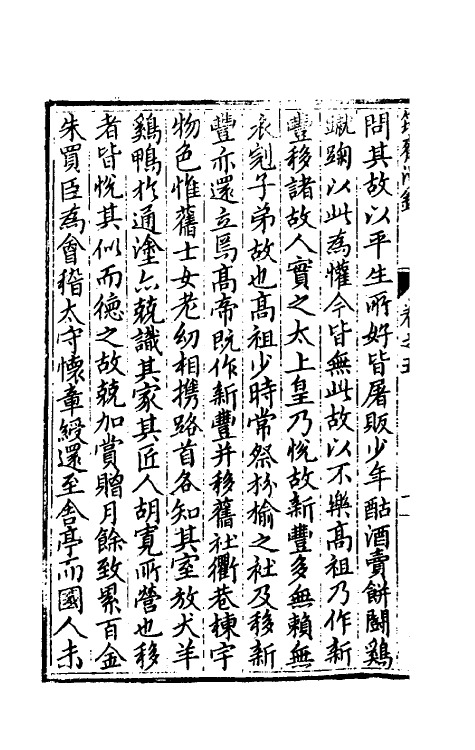 問其故以平生所好皆屠販少年酤酒賣餅鬬鷄
蹴踘以此為懽今皆無此故以不樂高祖乃作新
豐移諸故人實之太上皇乃悅故新豐多無賴無
衣冠子弟故也高祖少時常祭枌榆之社及移新
豐亦還立焉高帝既作新豐并移舊社衢巷棟宇
物色惟舊士女老幼相携路首各知其室放犬羊
鷄鴨於通塗亦競識其家其匠人胡寬所營也移
者皆悅其似而德之故競加賞贈月餘致累百金
朱買臣為會稽太守懷章綬還至舍亭而國人未